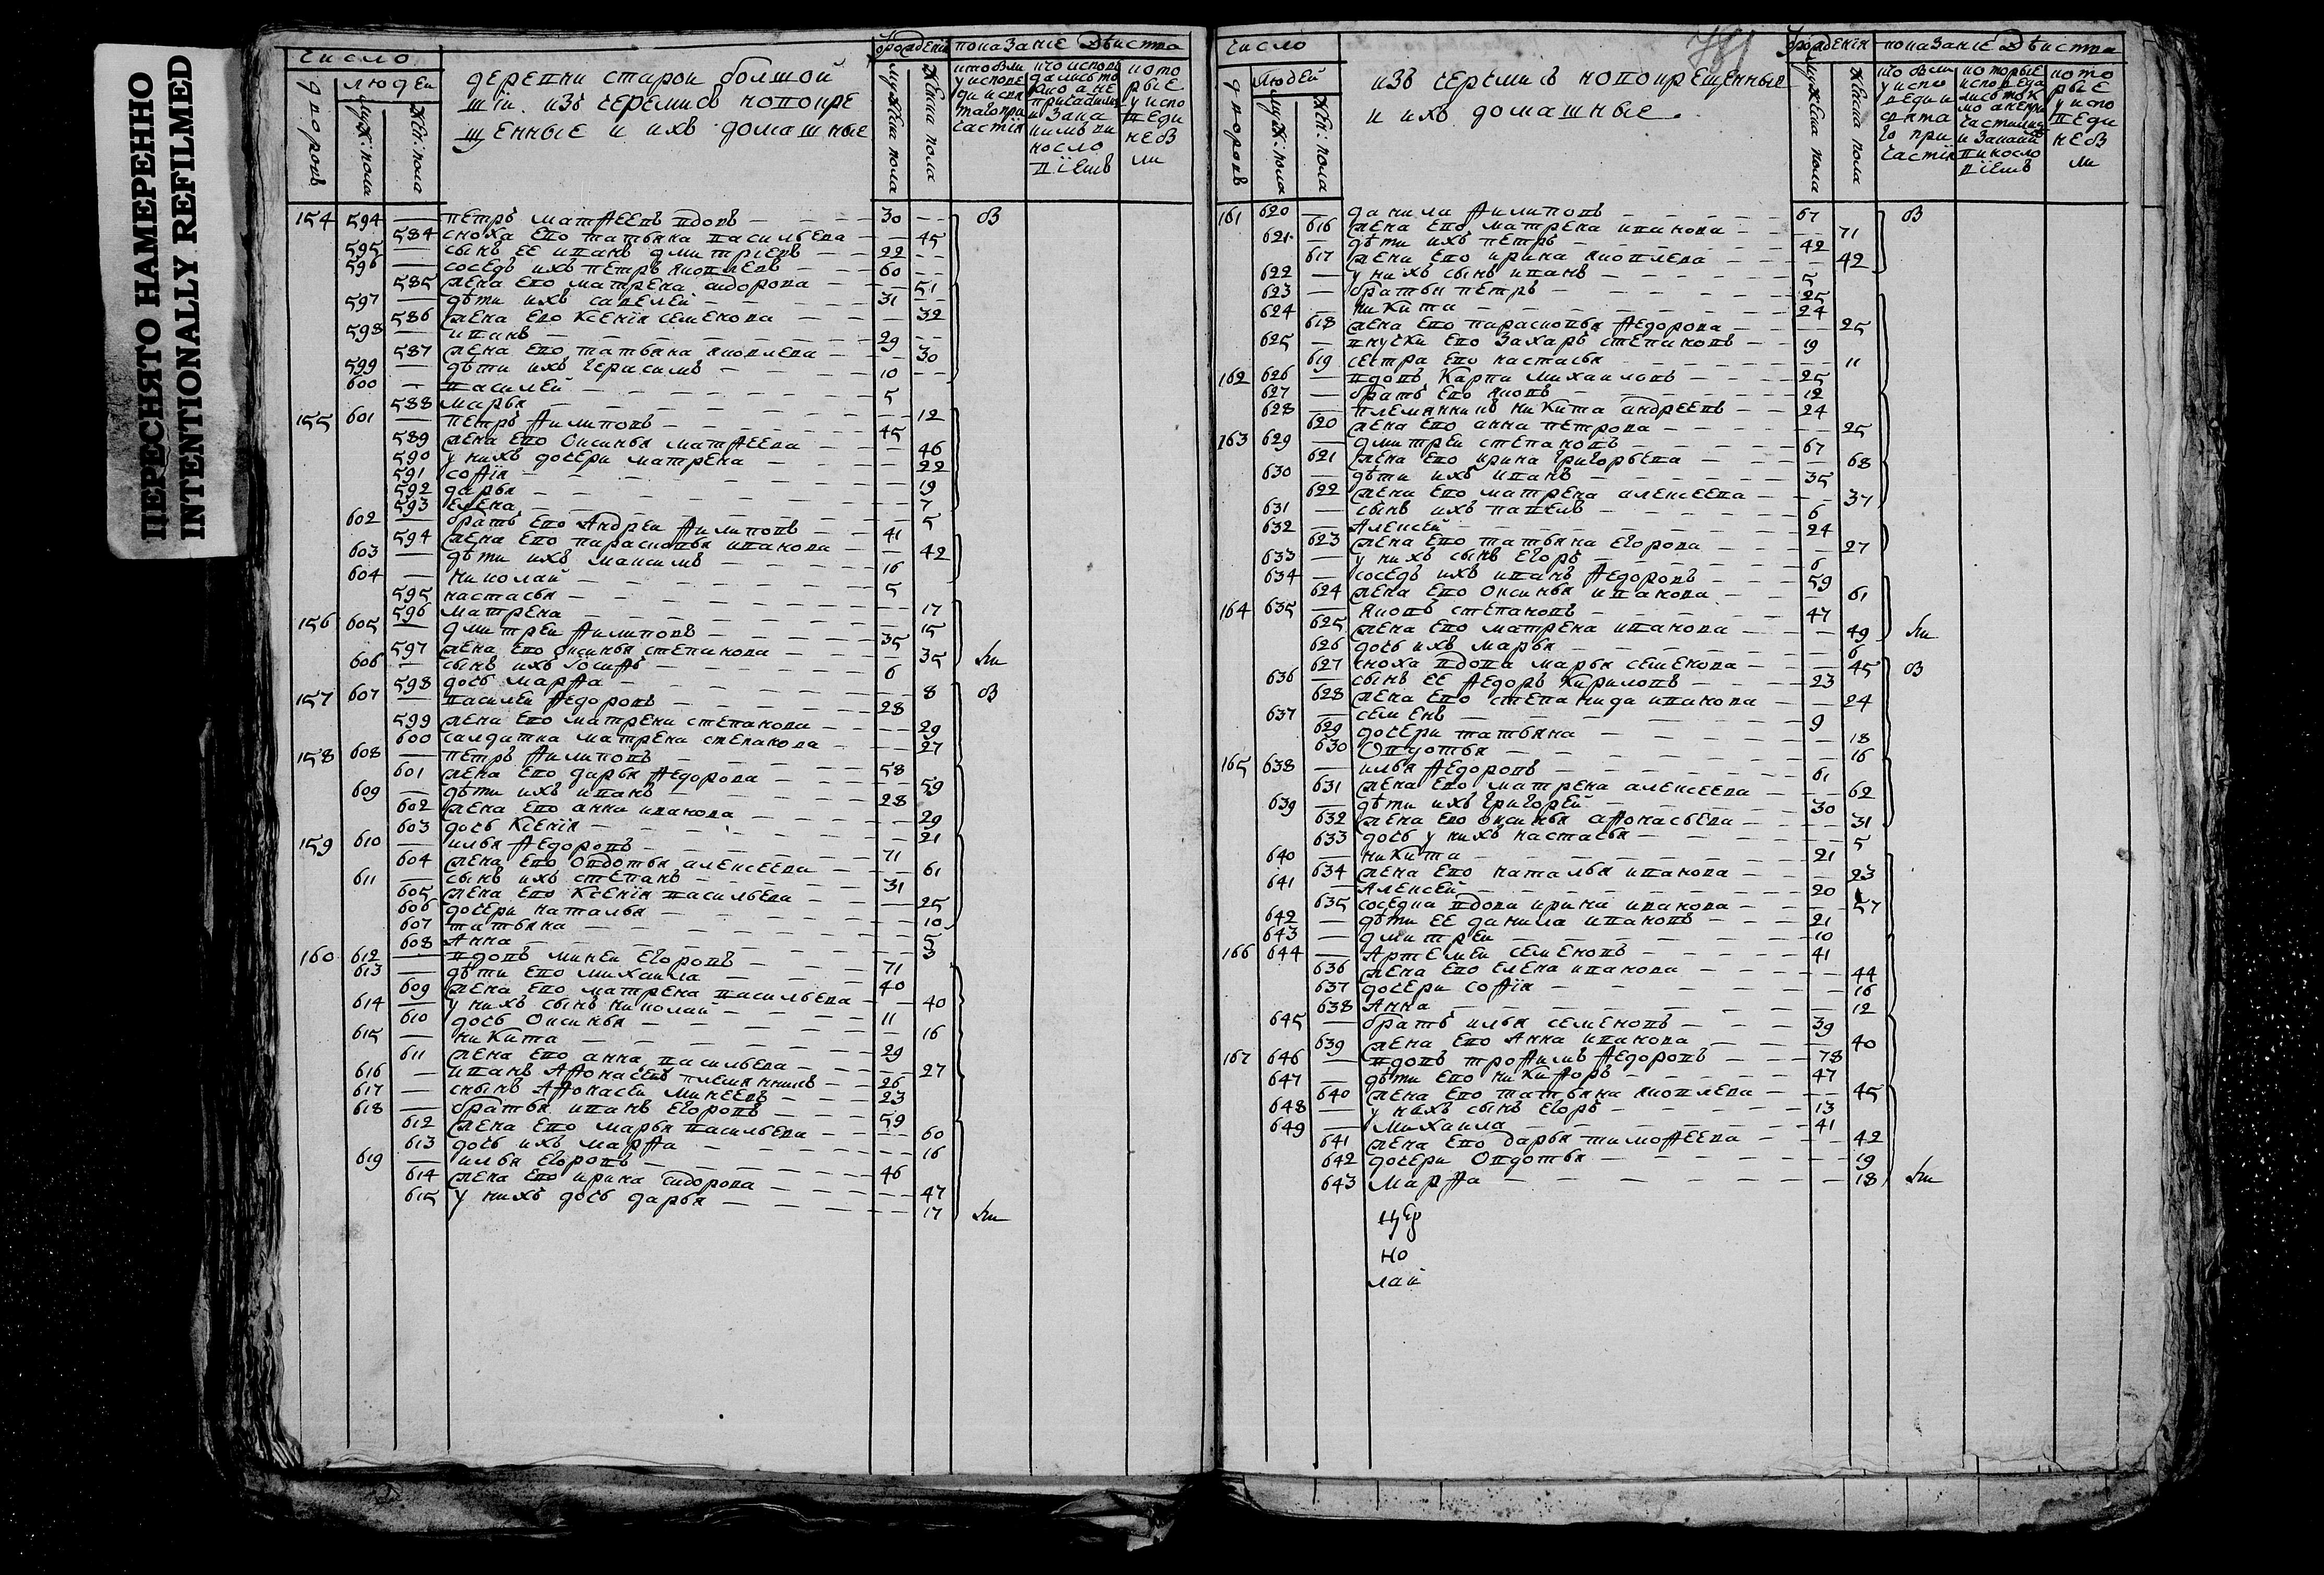 ПЕРЕСНЯТО НАМЕРЕННО
INTENTIONALLY REFILMED
число
дворовъ
людеи
муж: пола
жен: пола
деревни старои болшои
шіи изъ черемисъ новокре
щенные и ихъ домашные
муженск пола
женска пола
показаніе действа
154 594 — петръ матѳеевъ вдовъ 30
584 сноха его татьяна васильева 45
595 — сынъ ее иванъ дмитріевъ 22
596 — соседъ ихъ петръ яковлевъ 60
585 жена его матрена сидорова 51
597 — дети ихъ савелеи 31
586 жена его ксенія семенова 32
598 — иванъ 29
587 жена его татьяна яковлева 30
599 — дети ихъ герасимъ 10
600 — василеи 5
588 марья 12
155 601 — петръ ѳилиповъ 45
589 жена его оксинья матѳеева 46
590 у нихъ дочери матрена 22
591 соѳія 19
592 дарья 7
593 елена 5
602 — братъ его андреи ѳилиповъ 41
594 жена его парасковья иванова 42
603 — дети ихъ максимъ 16
604 — николаи 5
595 настасья 17
596 матрена 15
156 605 — дмитреи ѳилиповъ 35
597 жена его оксинья степанова 35
606 — сынъ ихъ іосиѳъ 6
598 дочь марѳа 8
157 607 — василеи ѳедоровъ 28
599 жена его матрена степанова 29
600 салдатка матрена степанова 27
158 608 — петръ ѳилиповъ 58
601 жена его дарья ѳедорова 59
609 — дети ихъ иванъ 28
602 жена его анна иванова 29
603 дочь ксенія 21
159 610 — илья ѳедоровъ 71
604 жена его овдотья алексеева 61
611 — сынъ ихъ степанъ 31
605 жена его ксенія васильева 25
606 дочери наталья 10
607 татьяна 5
608 анна 3
160 612 — вдовъ минеи егоровъ 71
613 — дети его михаила 40
609 жена его матрена васильева 40
614 — у нихъ сынъ николаи 11
610 дочь оксинья 16
615 — никита 29
611 жена его анна васильева 27
616 — иванъ аѳонасеевъ племянникъ 26
617 — сынъ аѳонасеи минеевъ 23
618 — братья иванъ егоровъ 59
612 жена его марья васильева 60
613 дочь ихъ марѳа 16
619 — илья егоровъ 46
614 жена его ирина сидорова 47
615 у нихъ дочь дарья 17
число
дворовъ
людей
муж: пола
жен: пола
изъ черемисъ новокрещенные
и ихъ домашные
муженска пола
женска пола
показаніе действа
161 620 — данила ѳилиповъ 67
616 жена его матрена иванова 71
621 — дети ихъ петръ 42
617 жена его ирина яковлева 42
622 — у нихъ сынъ иванъ 5
623 — братья петръ 25
624 — никита 24
618 жена его парасковья ѳедорова 25
625 — внуки его захаръ степановъ 19
619 сестра его настасья 11
162 626 — вдовъ карпъ михаиловъ 25
627 — братъ его яковъ 12
628 — племянникъ никита андреевъ 24
620 жена его анна петрова 25
163 629 — дмитреи степановъ 67
621 жена его ирина григорьева 68
630 — дети ихъ иванъ 35
622 жена его матрена алексеева 37
631 — сынъ ихъ павелъ 6
632 — алексеи 24
623 жена его татьяна егорова 27
633 — у нихъ сынъ егоръ 6
634 — соседъ ихъ иванъ ѳедоровъ 59
624 жена его оксинья иванова 61
164 635 — яковъ степановъ 47
625 жена его матрена иванова 49
626 дочь ихъ марья 6
627 сноха вдова марья семенова 45
636 — сынъ ее ѳедоръ кириловъ 23
628 жена его степанида иванова 24
637 — семенъ 9
629 дочери татьяна 18
630 овдотья 16
165 638 — илья ѳедоровъ 61
631 жена его матрена алексеева 62
639 — дети ихъ григореи 30
632 жена его оксинья аѳонасьева 31
633 дочь у нихъ настасья 5
640 — никита 21
634 жена его наталья иванова 23
641 — алексеи 20
635 соседка вдова ирина иванова 57
642 — дети ее данила ивановъ 21
643 — дмитреи 10
166 644 — артемеи семеновъ 41
636 жена его елена иванова 44
637 дочери соѳія 16
638 анна 12
645 — братъ илья семеновъ 39
639 жена его анна иванова 40
167 646 — вдовъ троѳимъ ѳедоровъ 78
647 — дети его никиѳоръ 47
640 жена его татьяна яковлева 45
648 — у нихъ сынъ егоръ 13
649 — михаила 41
641 жена его дарья тимоѳеева 42
642 дочери овдотья 19
643 марѳа 18
но
лаи